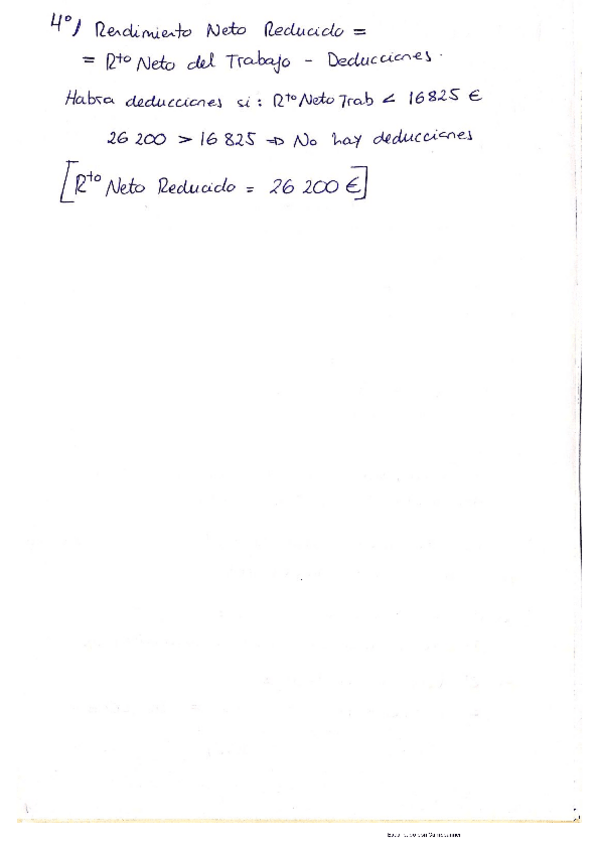 4º) Rendimiento Neto Reducido =
= Rto Neto del Trabajo - Deducciones.
Habra deducciones si : Rto Neto Trab < 16825 €
26 200 > 16 825 => No hay deducciones
[Rto Neto Reducido = 26 200 €]